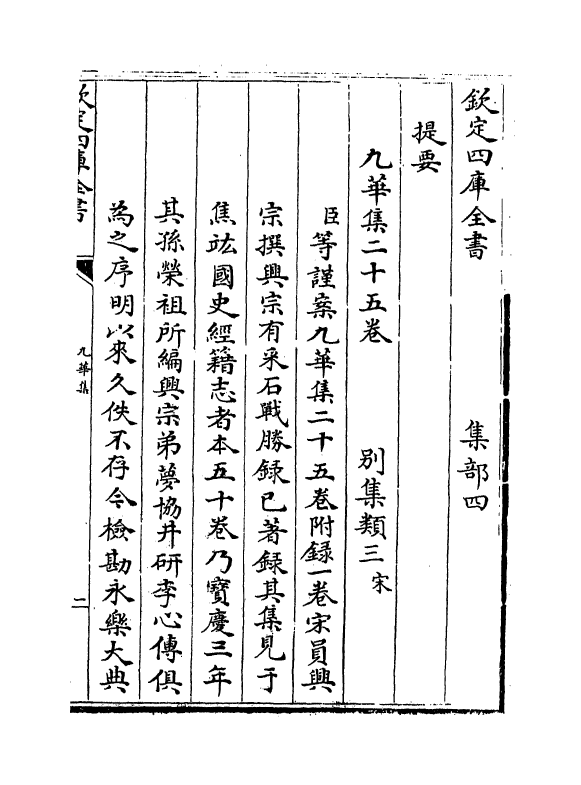 欽定四庫全書　集部四
提要
九華集二十五卷　别集類三宋
臣等謹案九華集二十五卷附録一卷宋員興
宗撰興宗有采石戰勝録已著録其集見于
焦竑國史經籍志者本五十卷乃寶慶三年
其孫榮祖所編興宗弟夢協井研李心傳俱
為之序明以來久佚不存今檢勘永樂大典
欽定四庫全書
九華集
二